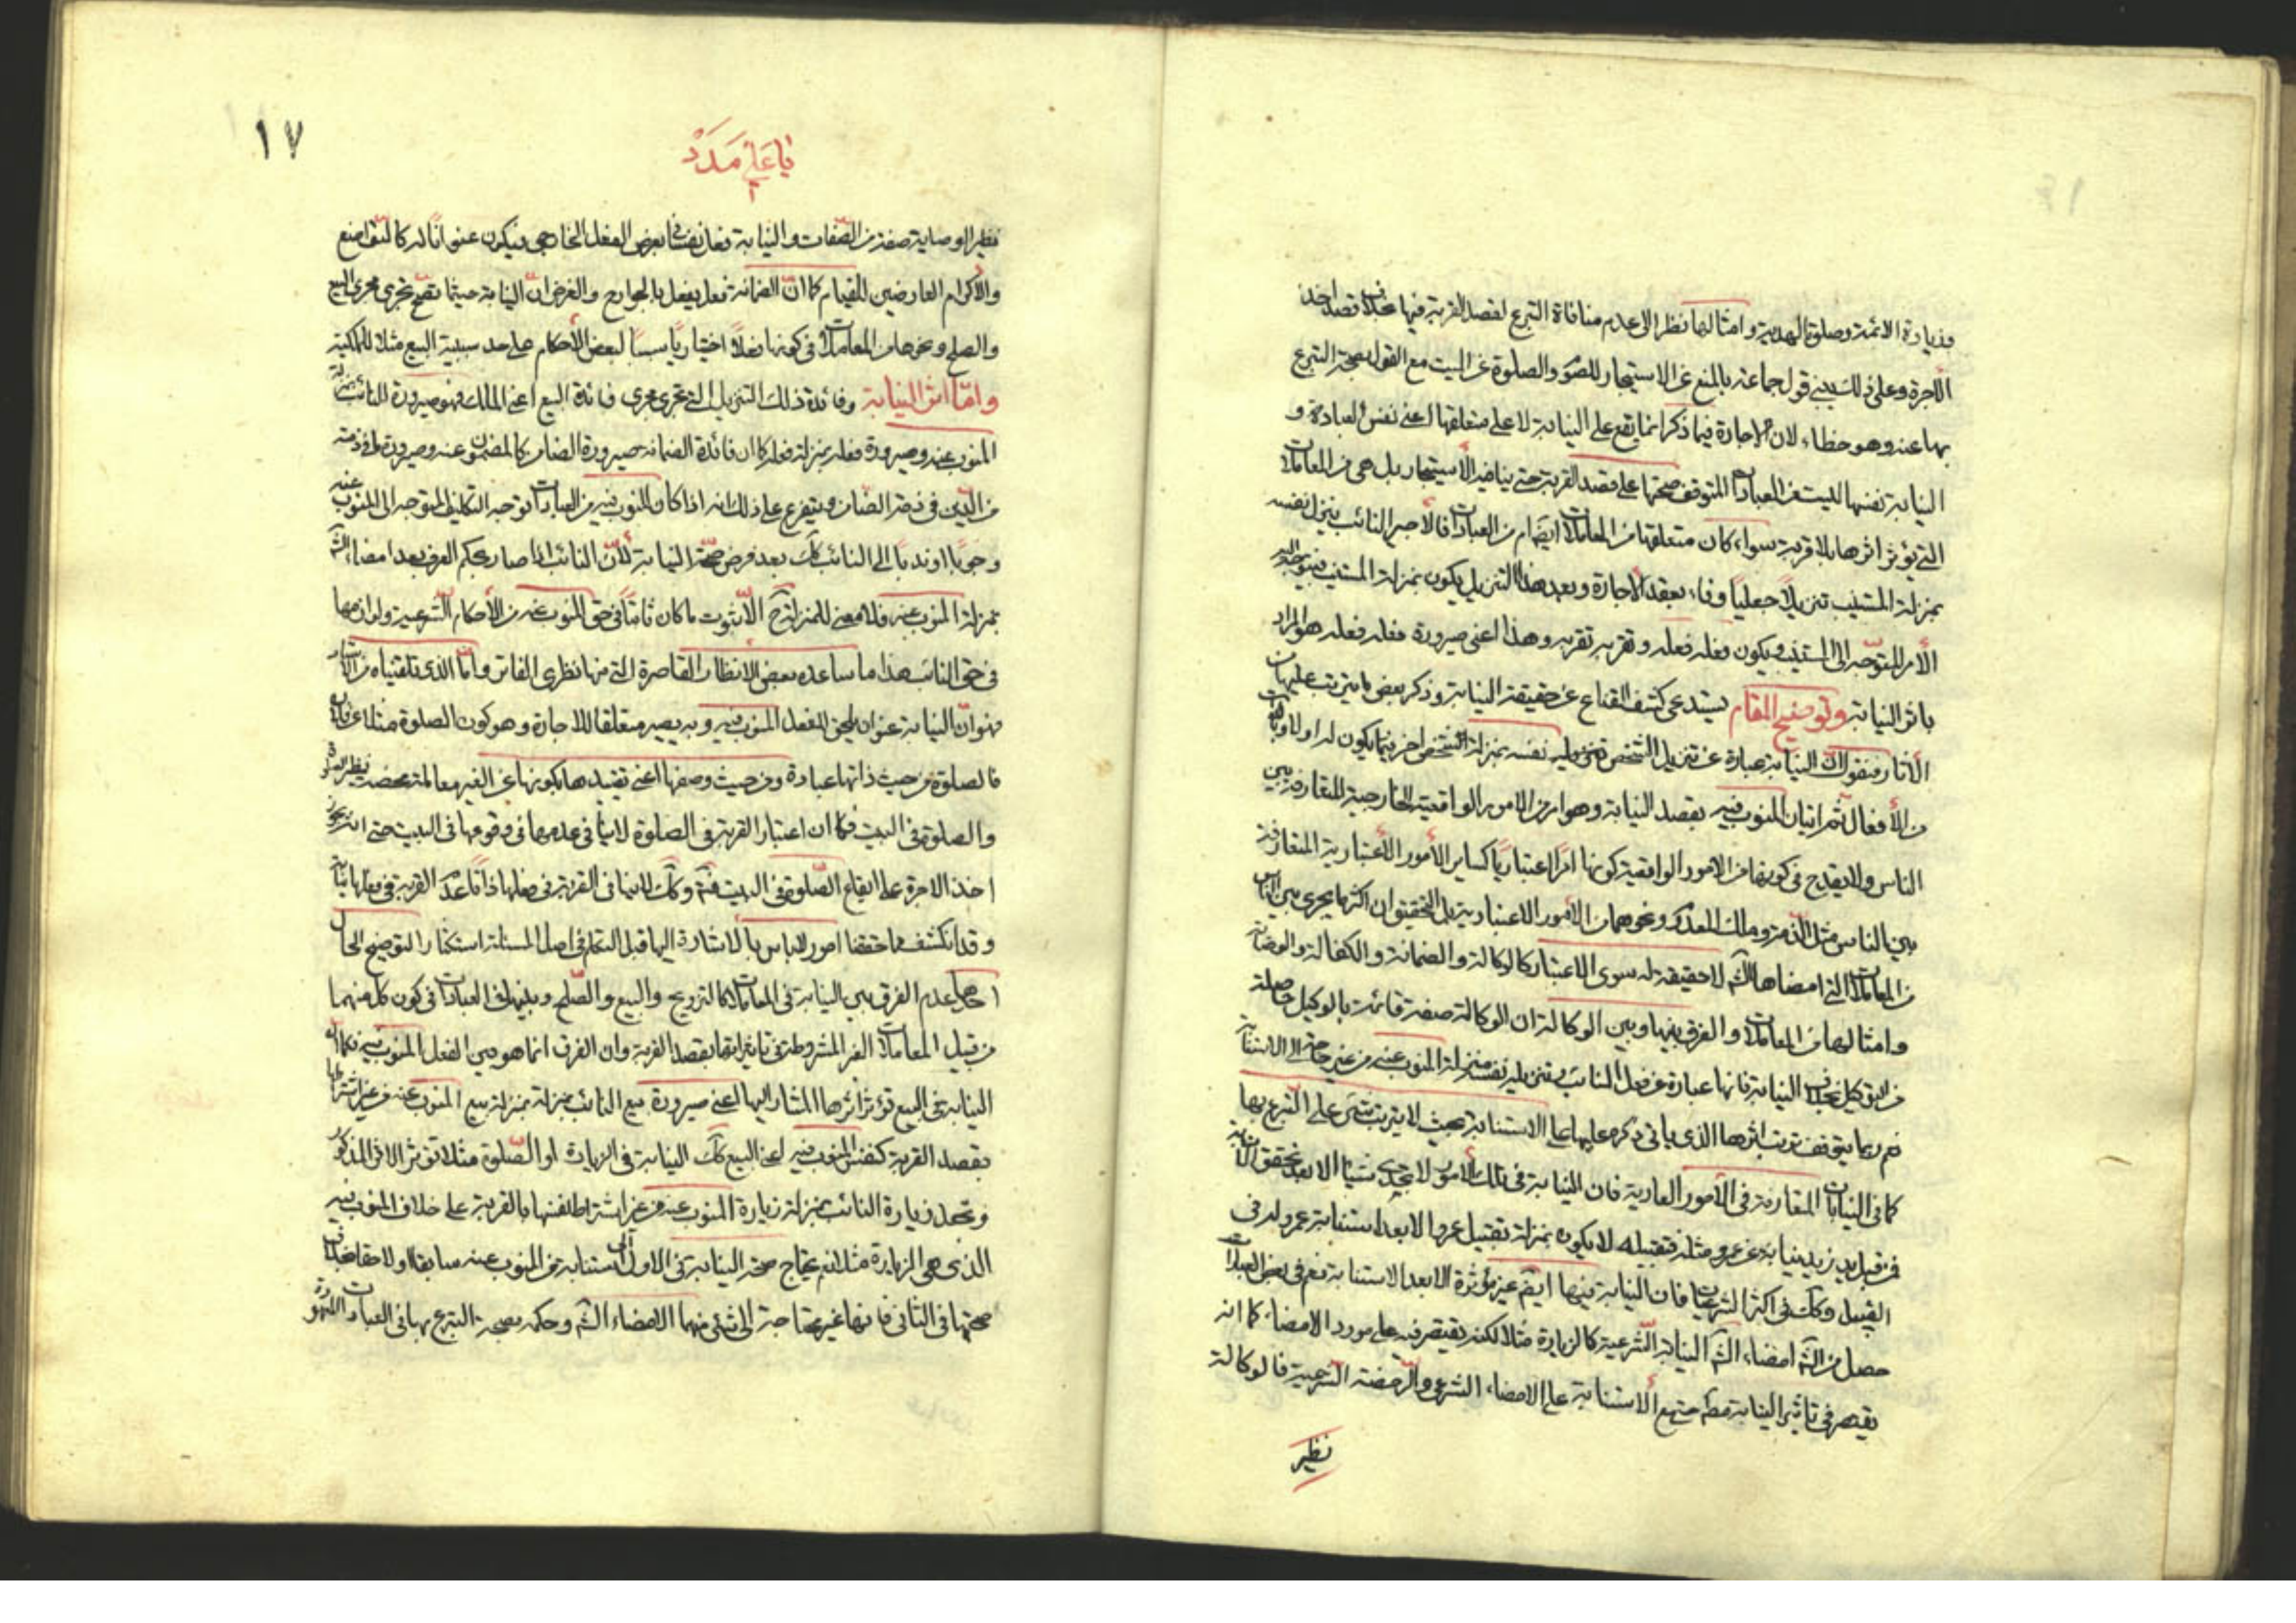 وزيارة الائمة وصلوة الهدية وامثالها نظرا الى عدم منافاة التبرع لقصد القربة فيها بخلاف قصد اخذ
الأجرة وعلى ذلك يبنى قول جماعة بالمنع عن الاستيجار للصوم والصلوة عن الميت مع القول بصحة التبرع
بها عنه وهو خطاء لان الاجارة فيما ذكر انما يقع على النيابة لا على متعلقها اعنى نفس العبادة و
النيابة نفسها ليست من العبادات المتوقف صحتها على قصد القربة حتى ينافيه الأستيجار بل هى من المعاملات
التى يؤثر اثرها بلا قربة سواء كان متعلقها من المعاملات ايضا ام من العبادات فالأجير النائب ينزل نفسه
بمنزلة المستنيب تنزيلاً جعلياً وفاء بعقد الأجارة وبعد هذا التنزيل يكون بمنزلة المستنيب فيتوجه اليه
الأمر المتوجه الى المستنيب ويكون فعله فعله وتقربه تقربه وهذا اعنى صيرورة فعله فعله هو المراد
باثر النيابة وتوضيح المقام يستدعى كشف القناع عن حقيقة النيابة وذكر بعض ما يترتب عليها من
الأثار فنقول ان النيابة عبارة عن تنزيل الشخص نفسه بمنزلة شخص اخر فيما يكون له او
من الأفعال ثم اتيان المنوب فيه بقصد النيابة وهو امر من الامور الواقعية الخارجية المتعارفة بين
الناس ولا يقدح فى كونها من الامور الواقعية كونها امرًا اعتباريًا كساير الأمور الأعتبارية المتعارفة
بين الناس مثل الذمة وملك المعدوم ونحوهما من الامور الاعتبارية بل التحقيق ان اكثر ما يجرى بين الناس
من المعاملات التى امضاها الشم لا حقيقة له سوى الاعتبار كالوكالة والضمانة والكفالة والوصاية
وامثالها من المعاملات والفرق بينها وبين الوكالة ان الوكالة صفة قائمة بالوكيل حاصلة
من التوكيل بخلاف النيابة فانها عبارة عن فعل النائب بتنزيله نفسه منزلة المنوب عنه من غير حاجة الى الاستنابة
نعم ربما يتوقف ترتب اثرها الذى ياتى ذكره عليها على الاستنابة بحيث لا يترتب شئ على التبرع بها
كما فى النيابات المتعارفة فى الأمور العادية فان النيابة فى تلك الأمور لا تجدى شيئا الا بعد تحقق الاستنابة
فمن قبل يد زيد نيابة عن عمرو مثلا فتقبيله لا يكون بمنزلة تقبيل عمرو الا بعد استنابة عمرو له فى
التقبيل وكك فى اكثر الشرعيات فان النيابة فيها ايضم غير مؤثرة الا بعد الاستنابة نعم فى بعض العبادات
حصل من الشم امضاء النيابة الشرعية كالزيارة مثلا لكنه يقتصر فيه على مورد الامضاء كما انه
يقتصر فى تاثير النيابة مطم حتى مع الأستنابة على الامضاء الشرعى والرخصة الشرعية فالوكالة
نظير
١٧
يا على مدد
نظير الوصاية صفة من الصّفات والنيابة فعل نفسانى يعرض الفعل الخارجى فيكون عنوانًا له كالتواضع
والأكرام العارضين للقيام كما انّ الضمانة فعل يفعل بالجوارح والغرض انّ النيابة حيثما تقع تجرى مجرى البيع
والصلح ونحوهما من المعاملات فى كونها فعلاً اختياريًا سببًا لبعض الأحكام على حد سببية البيع مثلا للملكية
وامّا اثر النيابة وفائدة ذلك التنزيل التى تجرى مجرى فائدة البيع اعنى الملك فهو صيرورة النائب بمنزلة
المنوب عنه وصيرورة فعله بمنزلة فعله كما ان فائدة الضمانة صيرورة الضامن كالمضمون عنه وصيرورة ما فى ذمته
من الدّين فى ذمة الضامن ويتفرع على ذلك انه اذا كان المنوب فيه من العبادات توجه التكليف المتوجه الى المنوب عنه
وجوبًا او ندبًا الى النائب كك بعد فرض صحّة النيابة لأنّ النائب اذا صار بحكم العرف بعد امضاء الشم
بمنزلة المنوب عنه فلا معنى للمنزلة ح الّا ثبوت ما كان ثابتًا فى حق المنوب عنه من الأحكام الشّرعية ولوازمها
فى حق النائب هذا ما ساعده بعض الانظار القاصرة التى منها نظرى الفاتر وامّا الذى تلقيناه من الاستاد
فهو انّ النيابة عنوان يلحق الفعل المنوب فيه وبه يصير متعلقا للاجارة وهو كون الصلوة مثلا عن فلان
فالصلوة من حيث ذاتها عبادة ومن حيث وصفها اعنى تقييدها بكونها عن الغير معاملة محضة نظير
والصلوة فى البيت فكما ان اعتبار القربة فى الصلوة لا ينافى عدمها فى وقوعها فى البيت حتى انه يجوز
اخذ الاجرة على ايقاع الصّلوة فى البيت فكم وكك لا ينافى القربة فى فعلها ذاتاً عدم القربة فى فعلها نيابة
وقد انكشف مما حققنا امور لا باس بالاشارة اليها قبل التكلم فى اصل المسئلة استكثارا لتوضيح الحال
احدها عدم الفرق بين النيابة فى المعاملات كالتزويج والبيع والصّلح وبينها فى العبادات فى كون كل منهما
من قبيل المعاملات الغير المشروطة فى تاثيراتها بقصد القربة وان الفرق انما هو بين الفعل المنوب فيه فكما ان
النيابة فى البيع تؤثر اثرها المشار اليها اعنى صيرورة بيع النائب بمنزلة بيع المنوب عنه من غير اشتراطها
بقصد القربة كنفس المنوب فيه اعنى البيع كك النيابة فى الزيارة او الصّلوة مثلا تؤثر الاثر المذكور
وتجعل زيارة النائب بمنزلة زيارة المنوب عنه من غير اشتراط نفسها بالقربة على خلاف المنوب فيه
الذى هى الزيارة مثلا نعم يحتاج صحة النيابة فى الاول الى استنابة من المنوب عنه سابقا او لاحقا بخلاف
صحتها فى الثانى فانها غير محتاجة الى شئ منهما الا امضاء الشم وحكمه بصحة التبرع بها فى العبادات